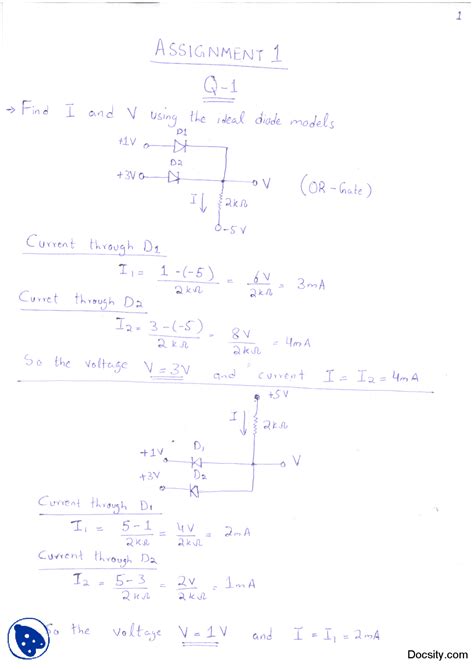 1
ASSIGNMENT 1
Q-1
→ Find I and V using the ideal diode models
D1
+1V
D2
+3V V (OR-Gate)
I↓ 2kΩ
-5V
Current through D1
I1 = 1-(-5) / 2kΩ = 6V / 2kΩ = 3mA
Curret through D2
I2 = 3-(-5) / 2kΩ = 8V / 2kΩ = 4mA
So the voltage V = 3V and current I = I2 = 4mA
+5V
I↓ 2kΩ
D1
+1V V
D2
+3V
Current through D1
I1 = 5-1 / 2kΩ = 4V / 2kΩ = 2mA
Current through D2
I2 = 5-3 / 2kΩ = 2V / 2kΩ = 1mA
So the voltage V = 1V and I = I1 = 2mA
Docsity.com